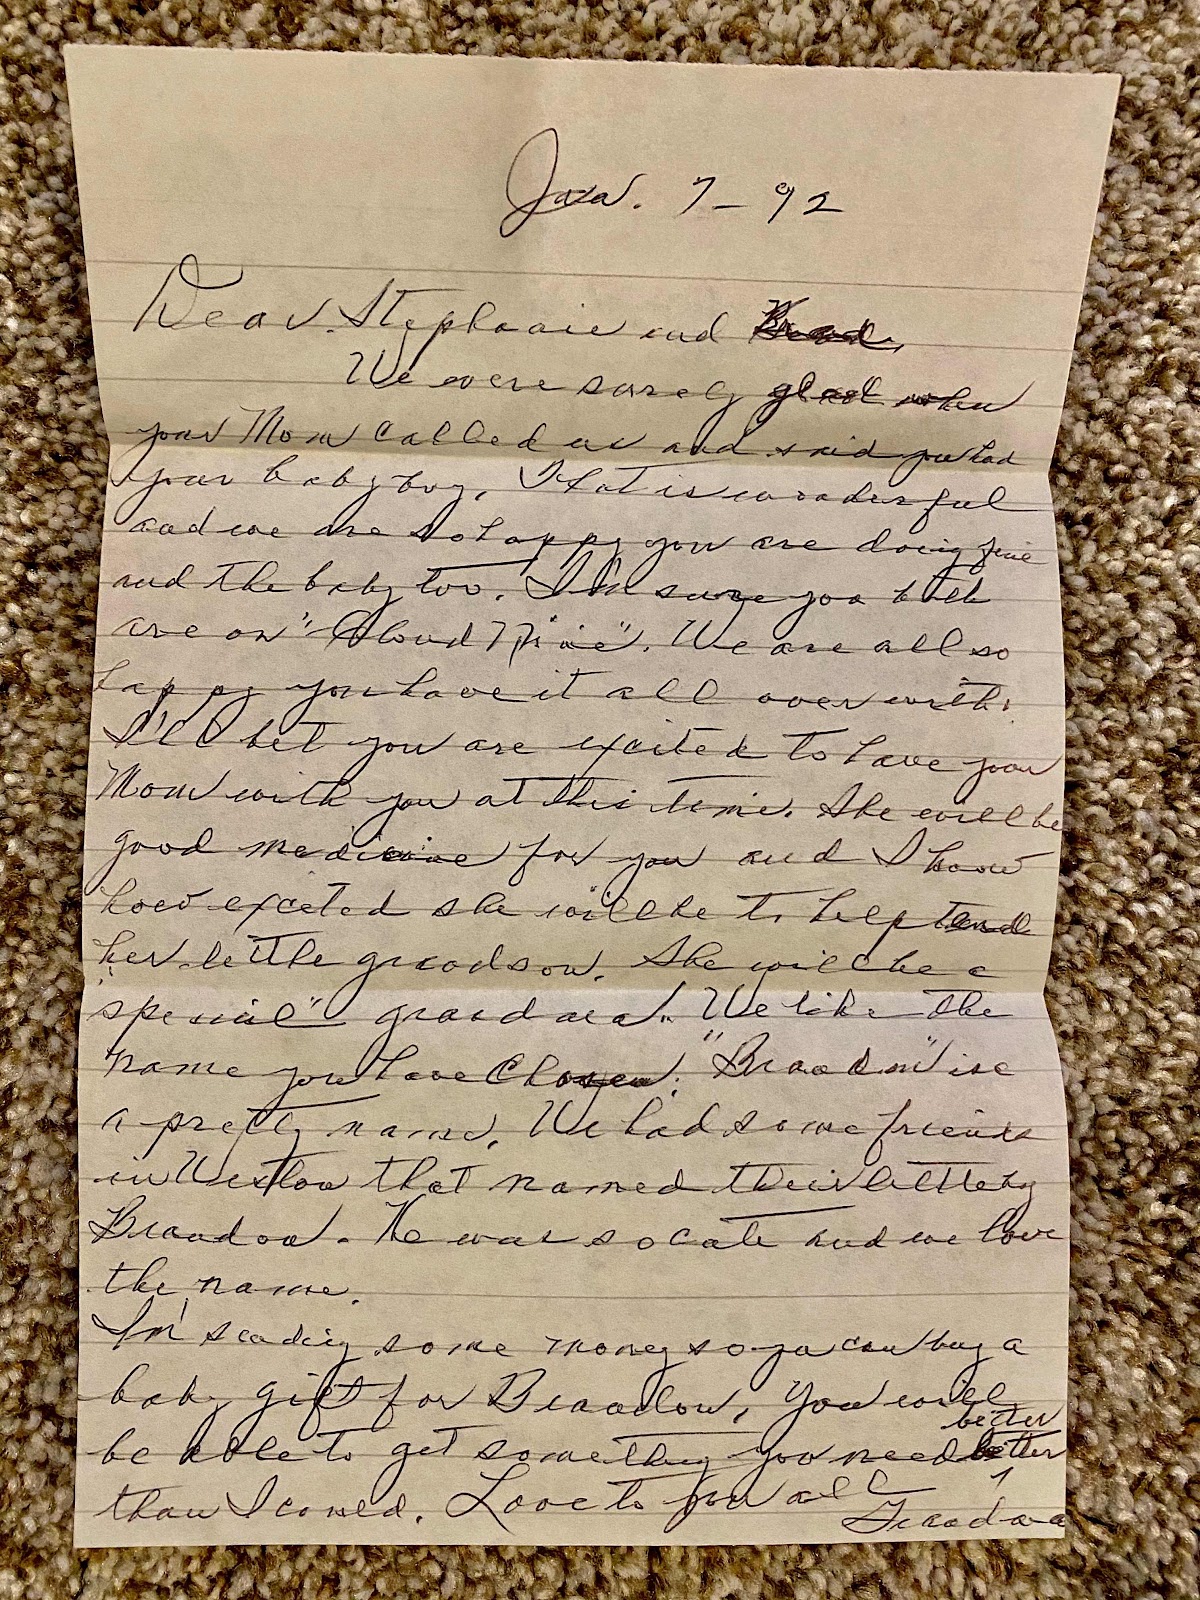 Jan. 7-92
Dear Stephanie and Brad,
We were surely glad when
your Mom called us and said you had
your baby boy. That is wonderful
and we are so happy you are doing fine
and the baby too. I'm sure you both
are on "Cloud Nine". We are all so
happy you have it all over with.
I'll bet you are excited to have your
Mom with you at this time. She will be
good medicine for you and I know
how excited she will be to help tend
her little grandson. She will be a
"special" grandma. We like the
name you have chosen. "Brandon" is
a pretty name. We had some friends
in that named their little boy
Brandon. He was so cute and we love
the name.
I'm sending some money so you can buy a
baby gift for Brandon, You will
better
be able to get something you need better
than I could. Love to you all
Grandma